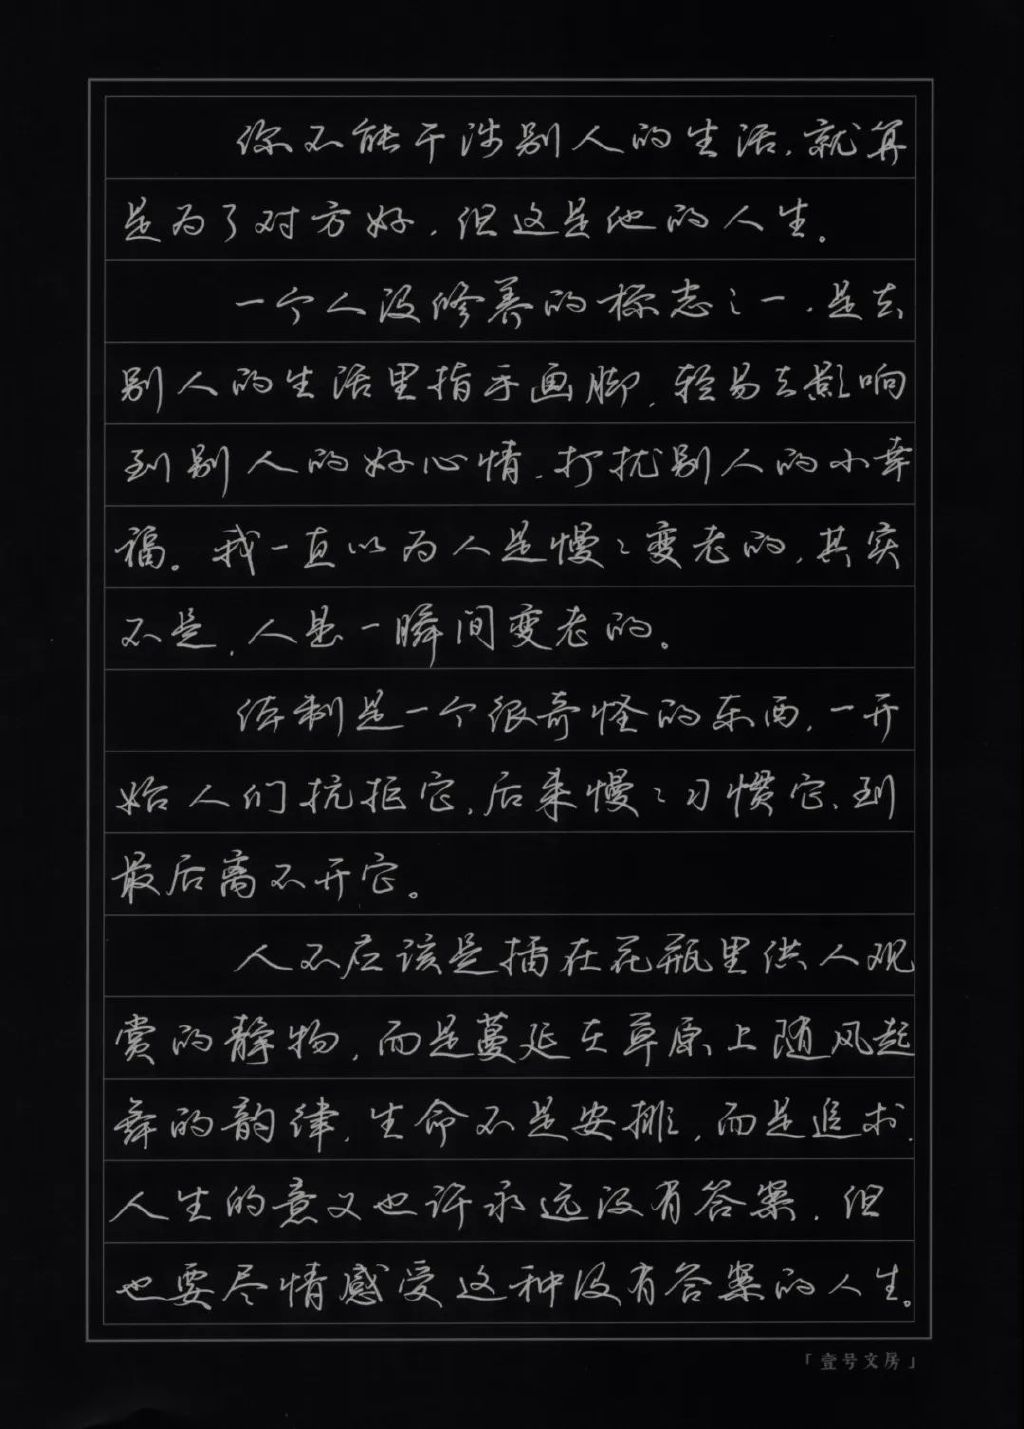 你不能干涉别人的生活，就算
是为了对方好，但这是他的人生。
一个人没修养的标志之一，是去
别人的生活里指手画脚，轻易去影响
到别人的好心情，打扰别人的小幸
福。我一直以为人是慢慢变老的，其实
不是，人是一瞬间变老的。
体制是一个很奇怪的东西，一开
始人们抗拒它，后来慢慢习惯它，到
最后离不开它。
人不应该是插在花瓶里供人观
赏的静物，而是蔓延在草原上随风起
舞的韵律，生命不是安排，而是追求，
人生的意义也许永远没有答案，但
也要尽情感受这种没有答案的人生。
「壹号文房」